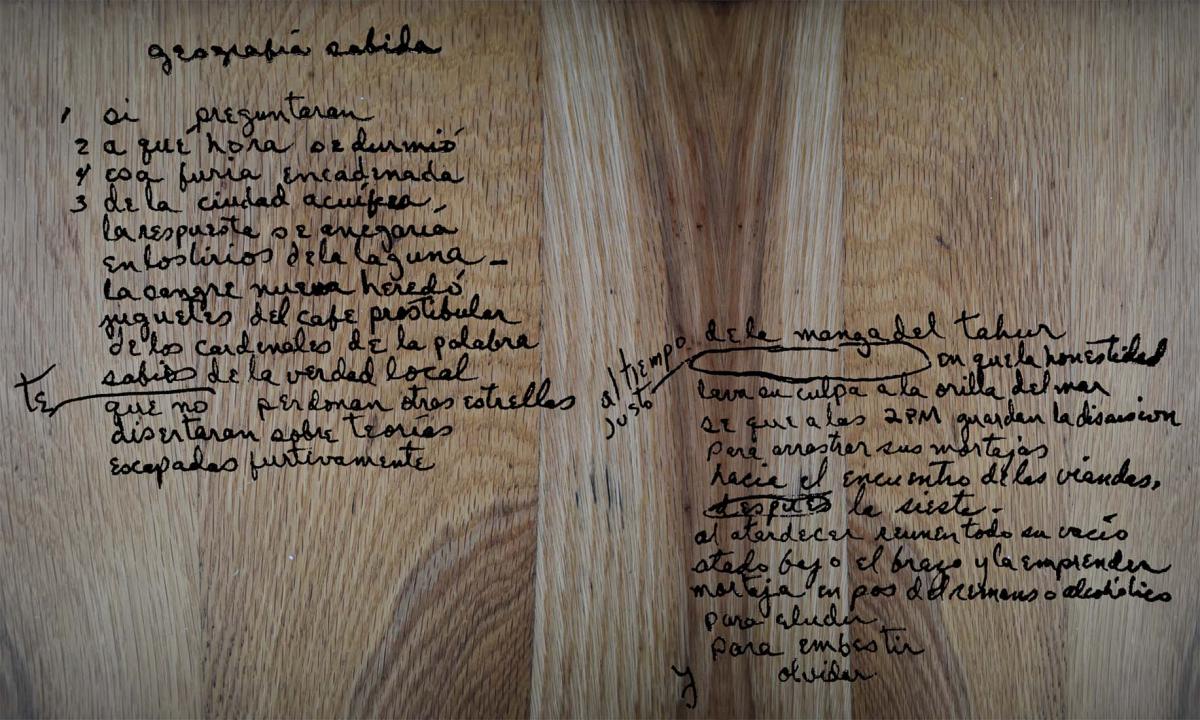 geografía sabida
1 si preguntaran
2 a que hora se durmió
4 esa furia encadenada
3 de la ciudad acuífera,
la respuesta se anegaría
en los lirios de la laguna -
la sangre nueva heredó
juguetes del café prostibular
de los cardenales de la palabra
sabios de la verdad local
te
que no perdonan otras estrellas
disertaran sobre teorías
escapadas furtivamente
de la manga del tahur
al tiempo
justo
en que la honestidad
lava su culpa a la orilla del mar
se que a las 2 PM guardan la
para arrastrar sus mortajas
hacia el encuentro de las viandas,
despues la siesta -
al atardecer reunen todo su vacío
atado bajo el brazo y la emprenden
mortaja en pos del remanso alcohólico
para eludir
para embestir
y olvidar